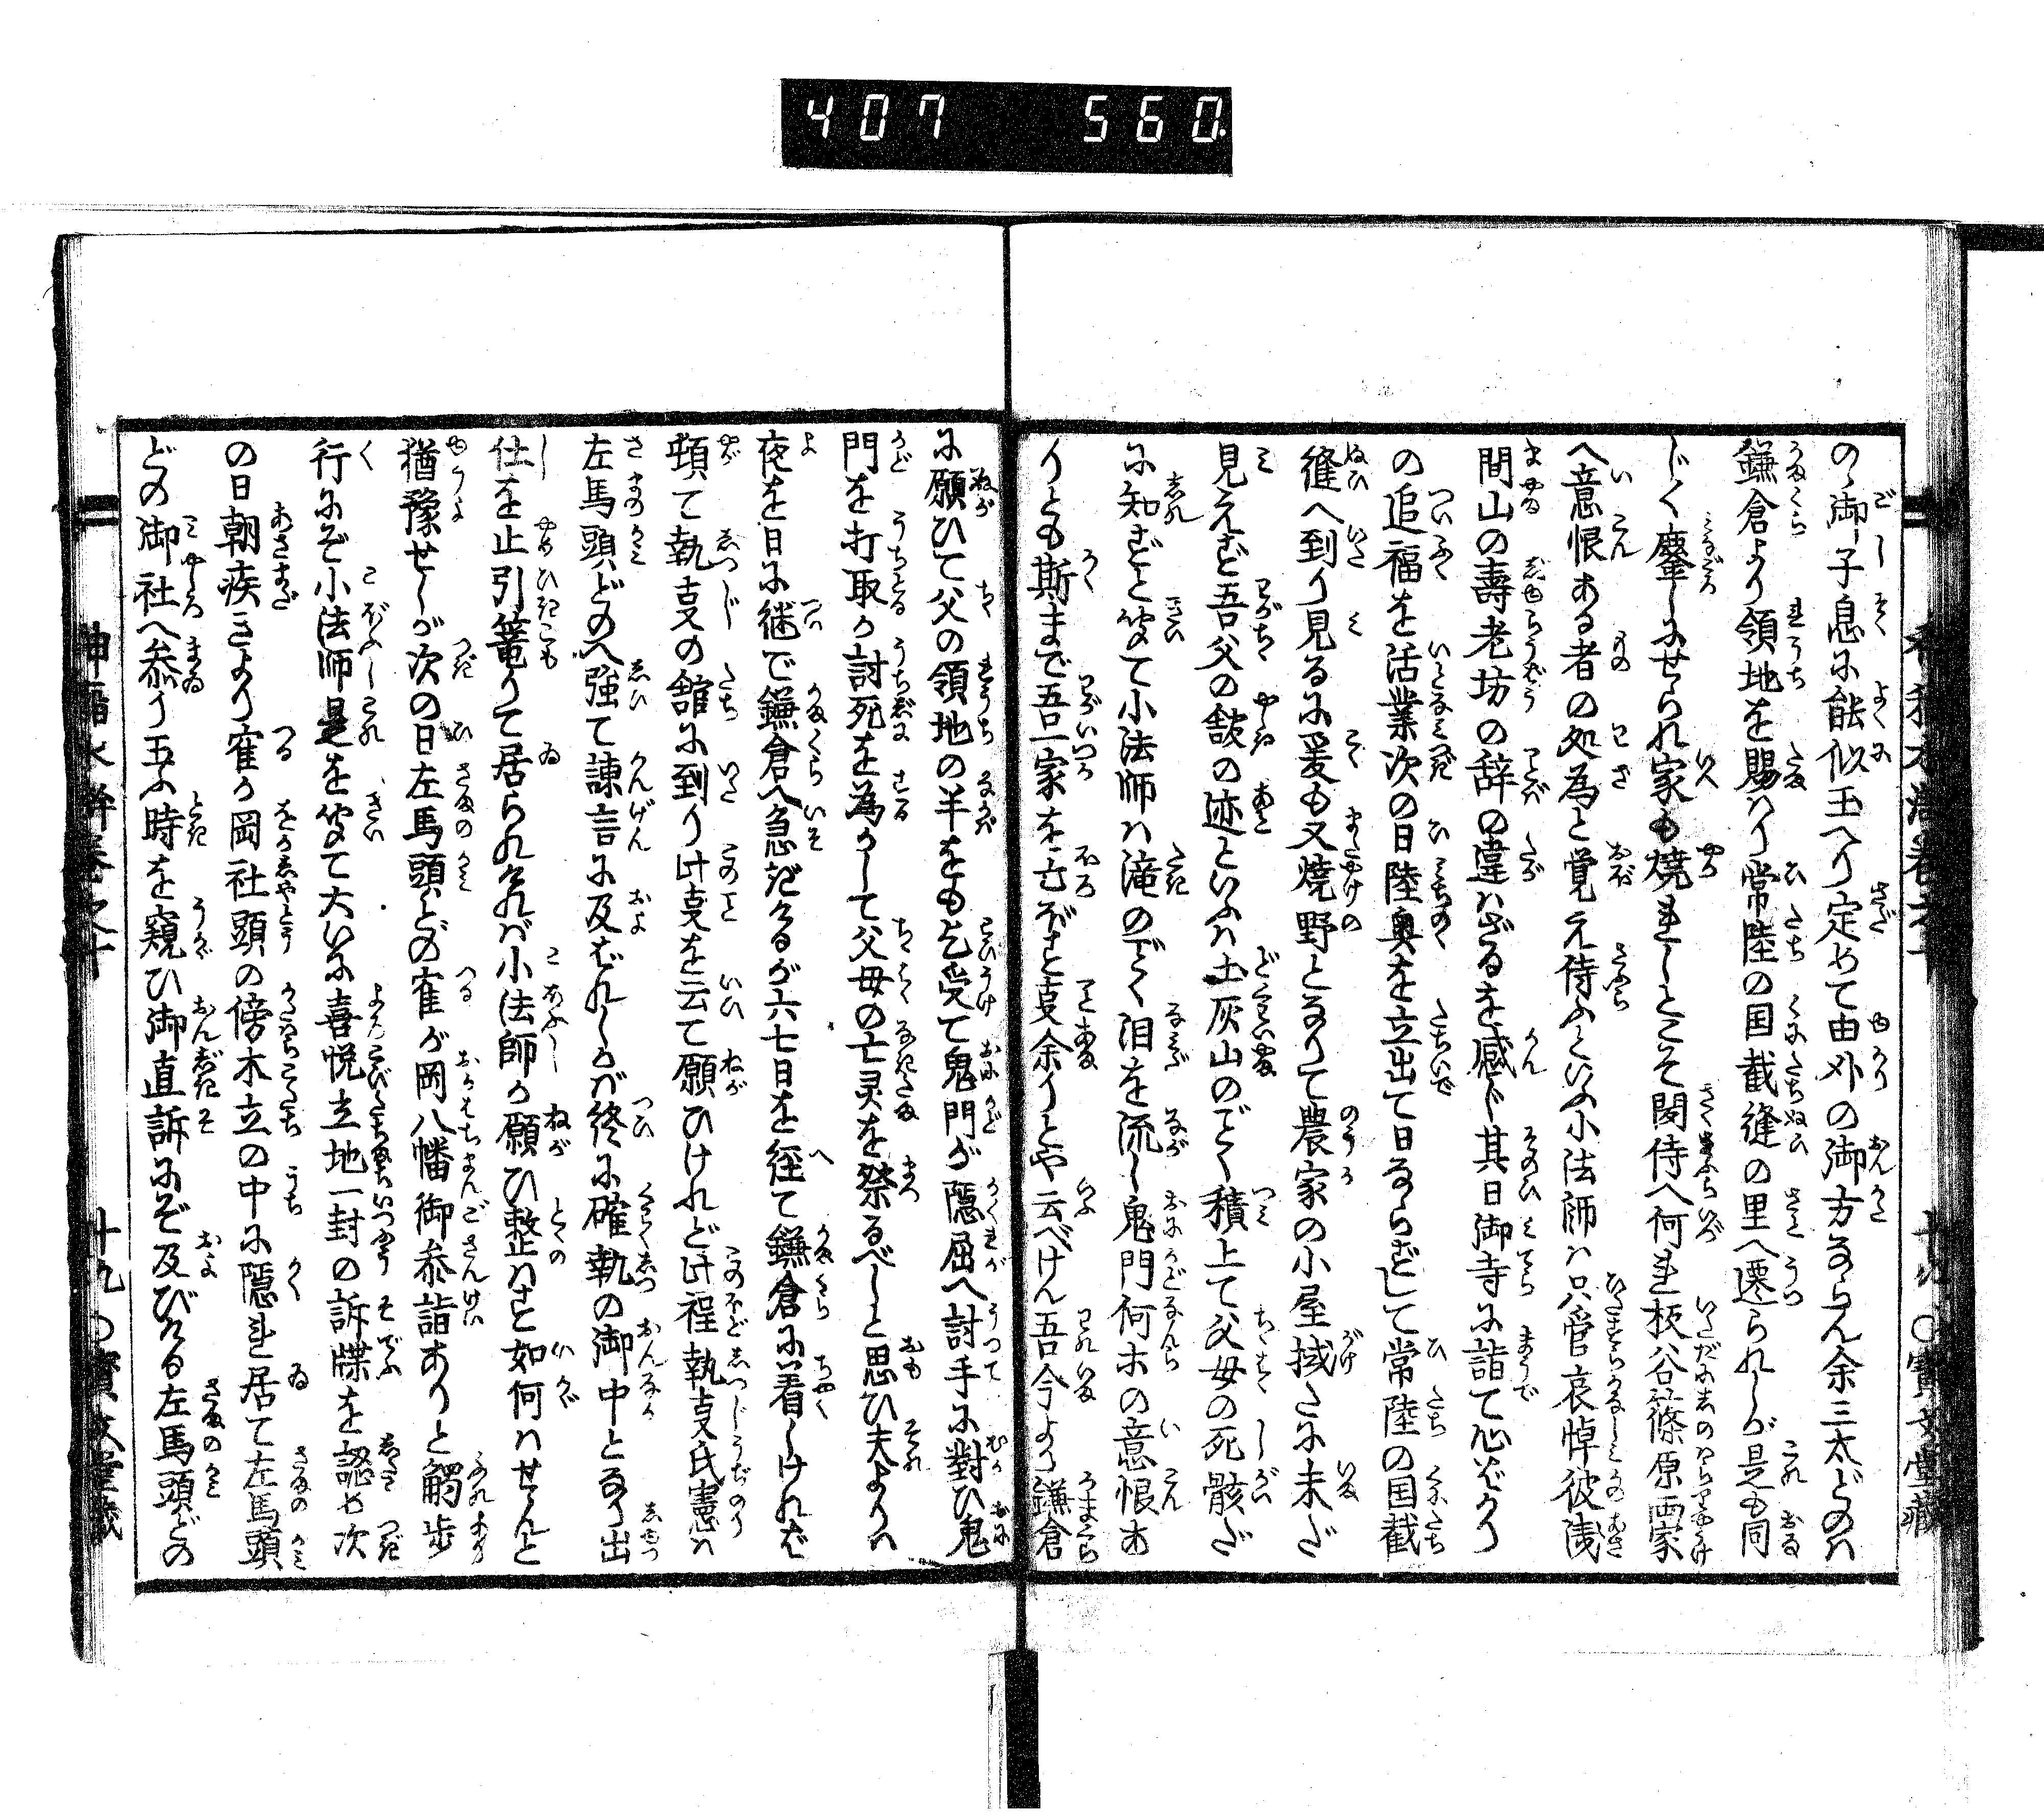 407 560
の御子息に能似玉へり定めて由縁の御方ならん余三太どのハ
鎌倉より領地を賜ハり常陸の国截縫の里へ遷られしが是も同
じく鏖しにせられ家も焼れしとこそ聞侍へ何れ板谷篠原両家
へ意恨ある者の処為と覚え侍ふといふ小法師ハ只管哀悼彼浅
間山の壽老坊の辞の違ハざるを感じ其日御寺に詣て心ばかり
の追福を活業次の日陸奥を立出て日ならずして常陸の国截
縫へ到り見るに爰も又焼野となりて農家の小屋掛さに未だ
見えず吾父の舘の迹といふハ土灰山のごとく積上て父母の死骸だ
に知ずと聞て小法師ハ滝のごとく泪を流し鬼門何ホの意恨あ
りとも斯まで吾一家を亡ぼす㕝余りとや云べけん吾今より鎌倉
に願ひて父の領地の半をも乞受て鬼門が隠屈へ討手に對ひ鬼
門を打取か討死を為かして父母の亡灵を祭るべしと思ひ夫よりハ
夜を日に継で鎌倉へ急ぎけるが六七日を径て鎌倉に着しけれバ
頓て執㕝の舘に到り此㕝を云て願ひけれど此程執㕝氏憲ハ
左馬頭どのへ強て諌言に及ばれしかバ終に確執の御中となり出
仕を止引篭りて居られけれバ小法師が願ひ整ハず如何ハせんと
猶豫せしが次の日左馬頭どの雀が岡八幡御参詣ありと觸歩
行にぞ小法師是を聞て大いに喜悦立地一封の訴牒を認め次
の日朝疾きより雀が岡社頭の傍木立の中に隠れ居て左馬頭
どの御社へ参り玉ふ時を窺ひ御直訴にぞ及びける左馬頭どの
十九〇寳文堂藏